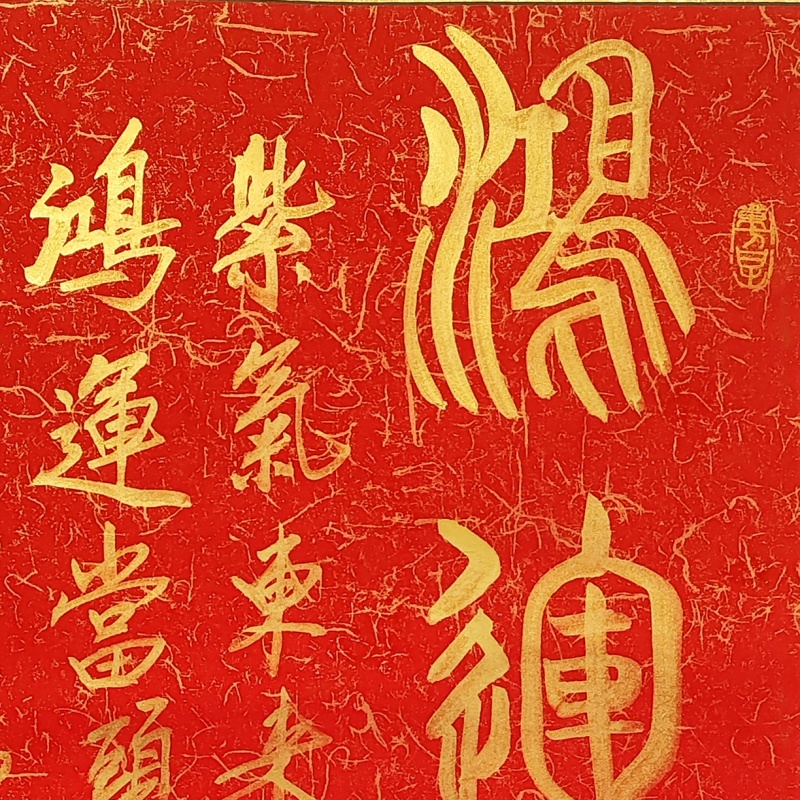 鴻運
紫氣東来
鴻運當頭